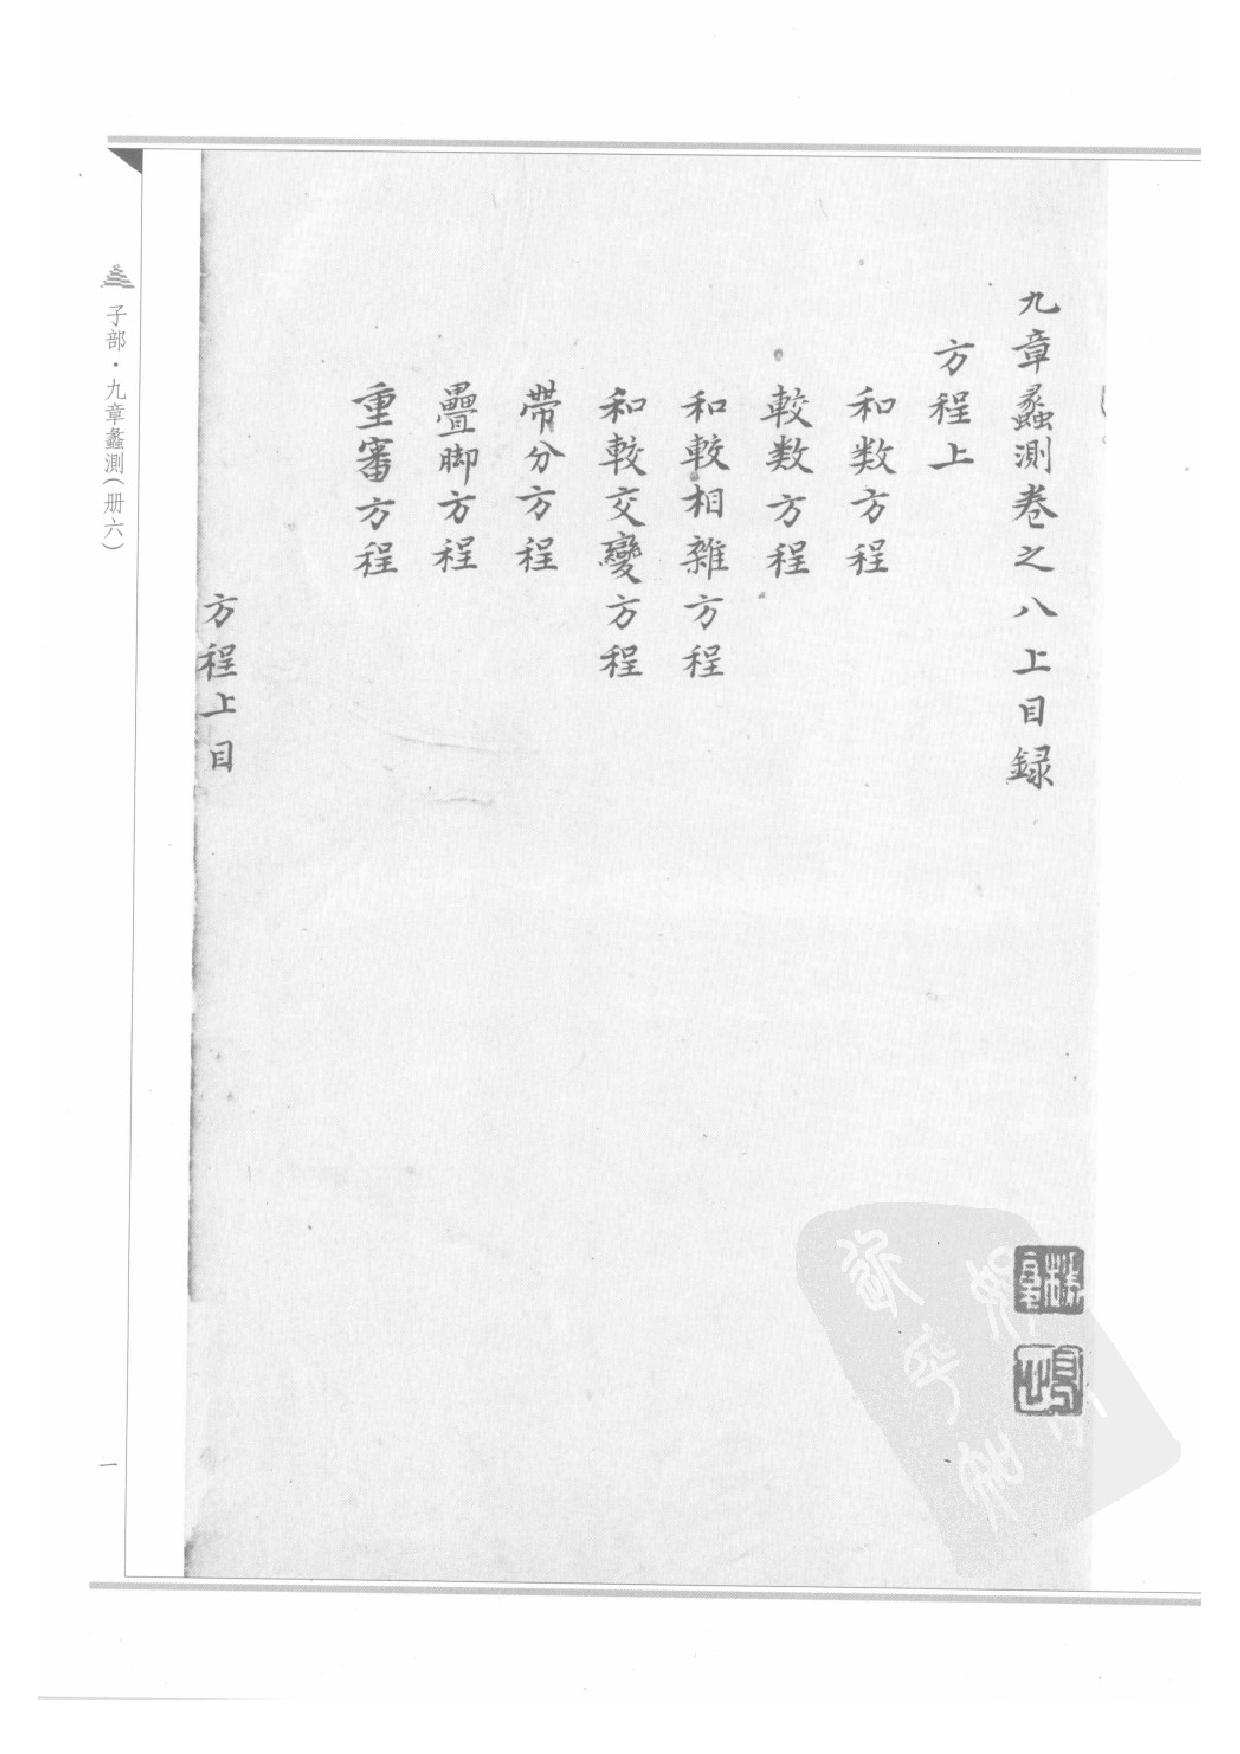 九章蠡測卷之八上目録
方程上
和数方程
較数方程
和較相雜方程
和較交變方程
帶分方程
疊脚方程
重審方程
方程上目
子部·九章蠡測(册六)
一